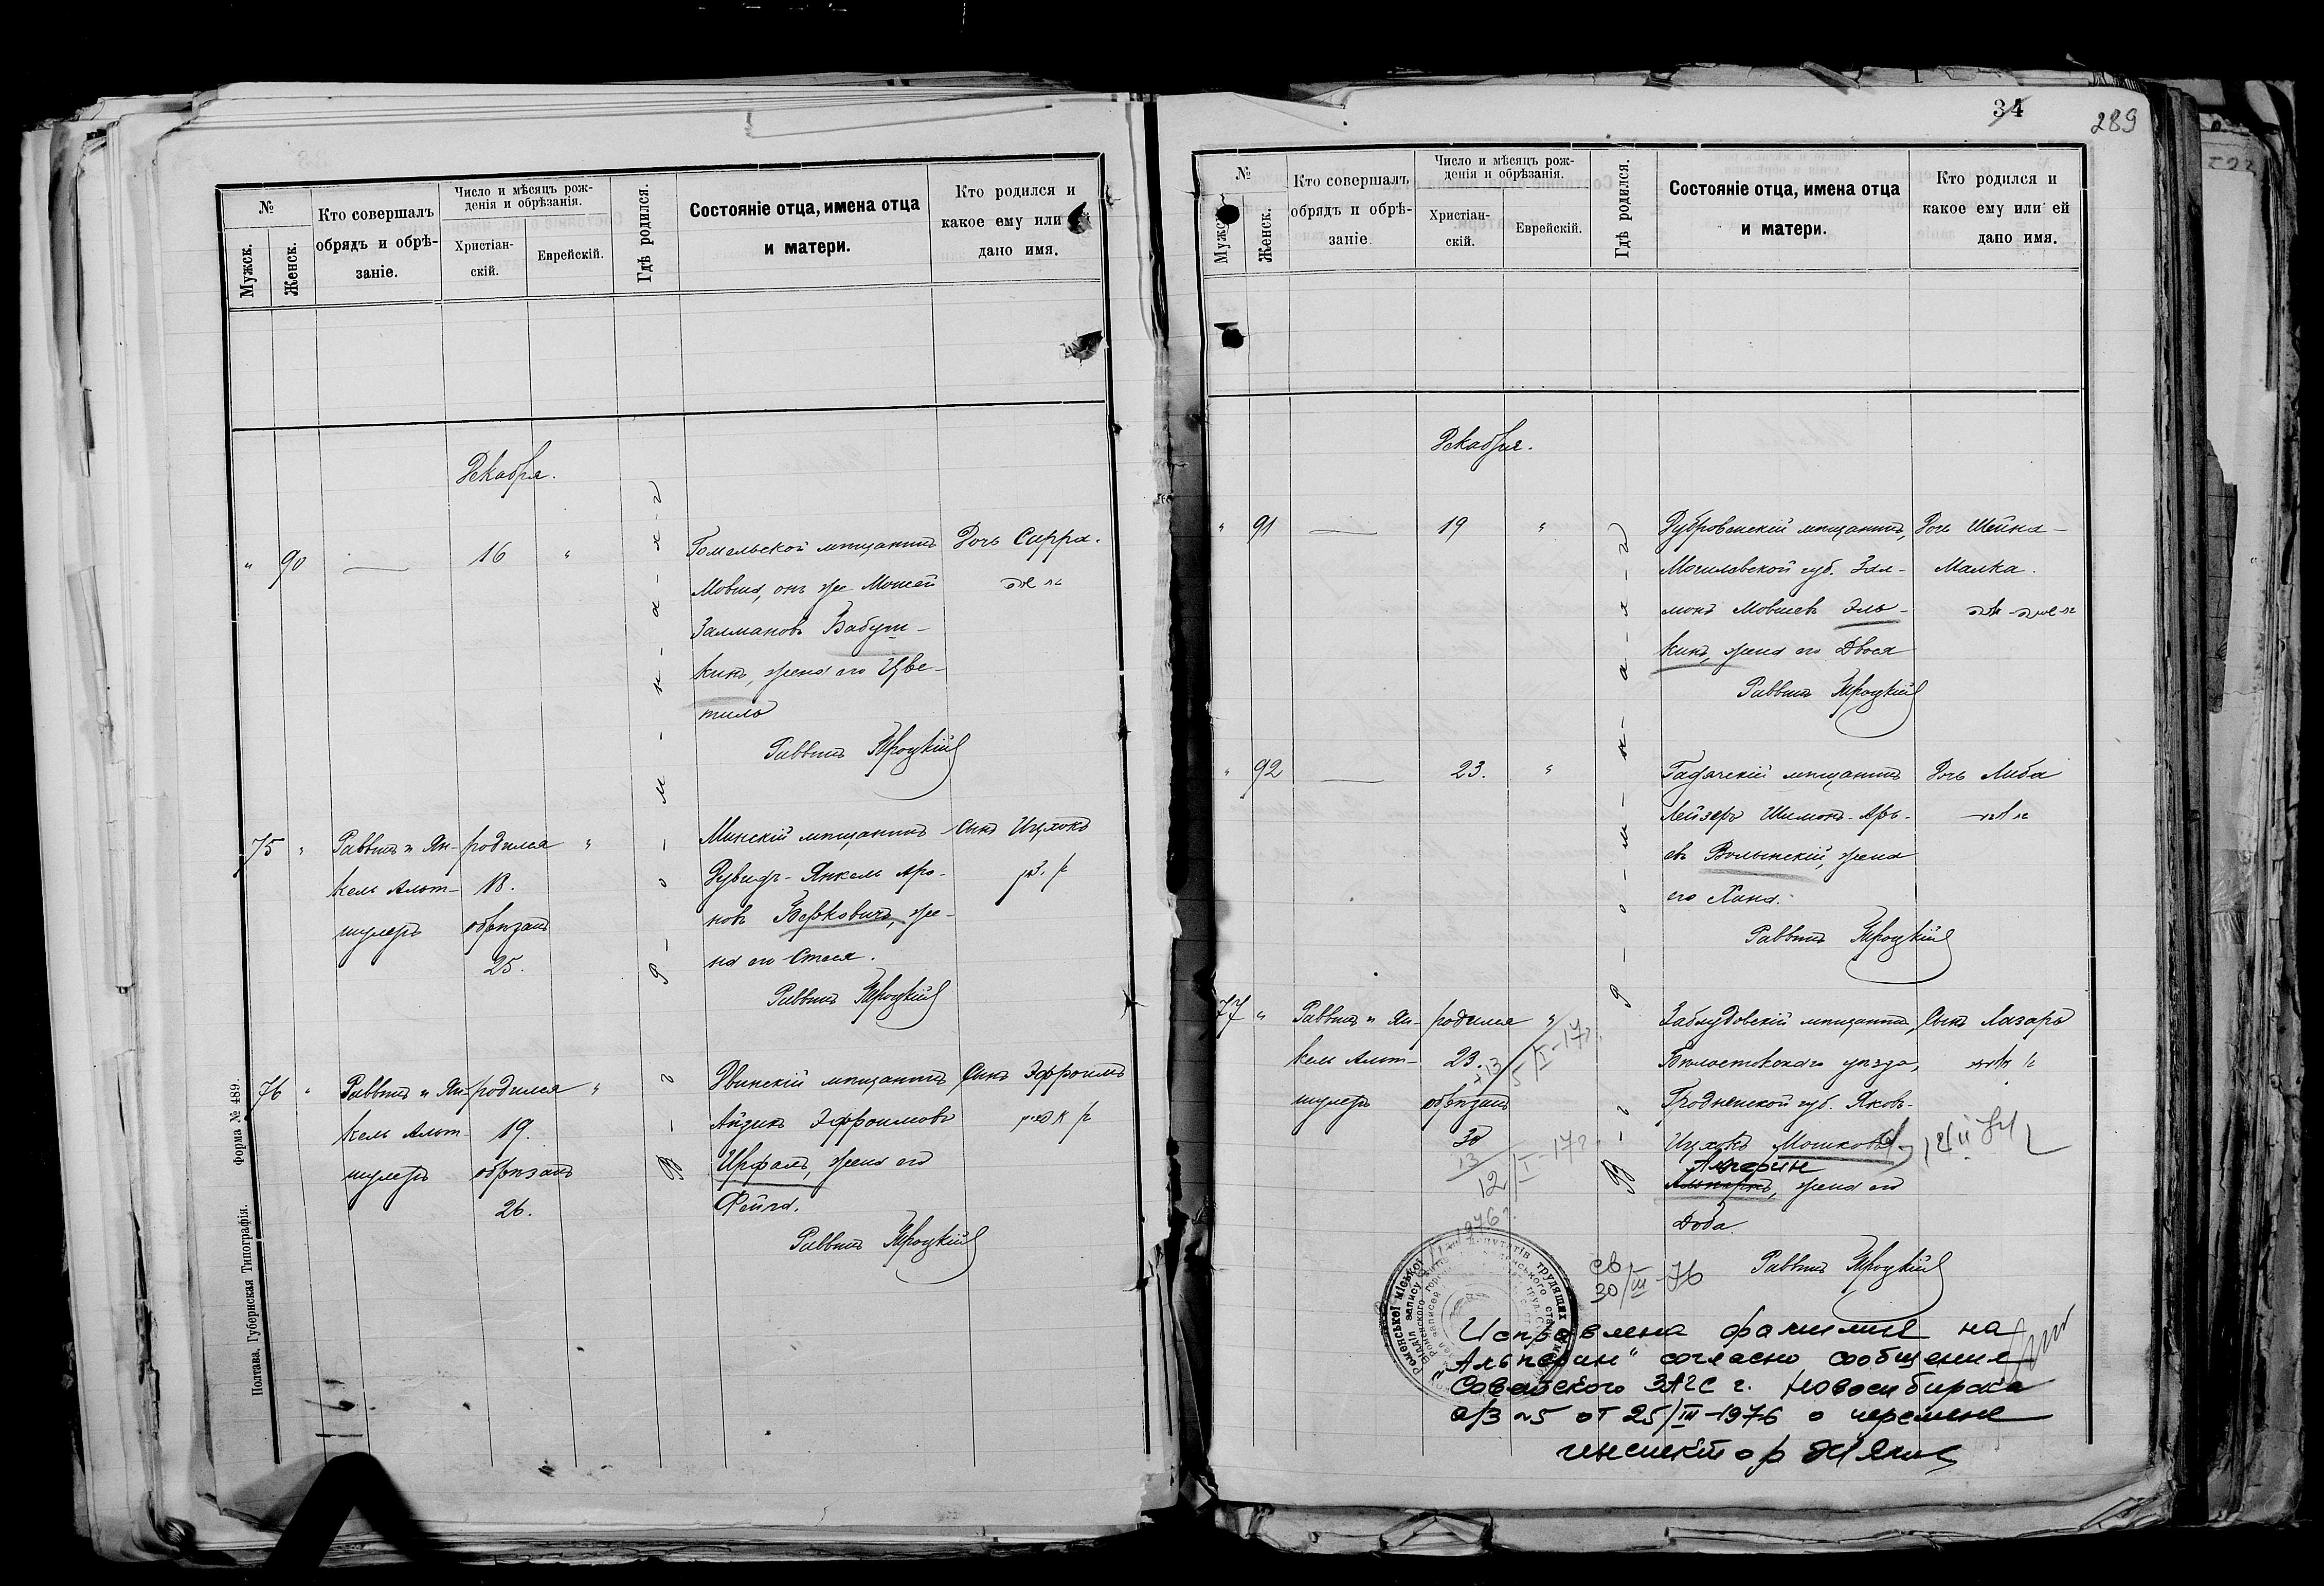 №
Мужск.
Женск.
Кто совершалъ
обрядъ и обрѣ-
заніе.
Число и мѣсяцъ рож-
денія и обрѣзанія.
Христіан-
скій.
Еврейскій.
Гдѣ родился.
Состояніе отца, имена отца
и матери.
Кто родился и
какое ему или
дано имя.
Декабря.
В - г - Р - о - м - н - а - х - ъ
" 90 — 16 "
Гомельской мѣщанинъ
Мовша, онъ же Мошей
Залмановъ Бабуш-
кинъ, жена его Цве-
тиль
Раввинъ Троцкій
Дочь Сирра.
75 "
Раввинъ и Ян-
кель Альт-
шулеръ
родился "
18.
обрѣзанъ
25.
Минскій мѣщанинъ
Дувидъ-Янкель Аро-
новъ Берковичъ, же-
на его Стася.
Раввинъ Троцкій
Сынъ Ицхокъ
76 "
Раввинъ и Ян-
кель Альт-
шулеръ
родился "
19.
обрѣзанъ
26.
Двинскій мѣщанинъ
Айзикъ Эфроимовъ
жена его
Фейга.
Раввинъ Троцкій
Сынъ Эфроимъ
Форма № 489.
Полтава, Губернская Типографія.
34
289
№
Мужск.
Женск.
Кто совершалъ
обрядъ и обрѣ-
заніе.
Число и мѣсяцъ рож-
денія и обрѣзанія.
Христіан-
скій.
Еврейскій.
Гдѣ родился.
Состояніе отца, имена отца
и матери.
Кто родился и
какое ему или ей
дано имя.
Декабря.
" 91 — 19 "
Дубровенскій мѣщанинъ,
Могилевской губ. Зал-
монъ Мовшевъ Эль-
кинъ, жена его Двося
Раввинъ Троцкій
Дочь Шейна-
Малка.
" 92 — 23. "
Гадячскій мѣщанинъ
Лейзеръ Шимонъ-Арь-
евъ Волынскій, жена
его Хана.
Раввинъ Троцкій
Дочь Либа
77 "
Раввинъ и Ян-
кель Альт-
шулеръ
родился "
23.
+13
5/I-17г.
обрѣзанъ
30
13
12/I-17г.
Заблудовскій мѣщанинъ,
Бѣлостокскаго уѣзда,
Гродненской губ. Яковъ-
Ицхокъ Мошковъ
Альперин
жена его
Доба
Раввинъ Троцкій
Сынъ Лазарь
св
30/III-76
Исправлена фамилия на
„Альперин" согласно сообщения
Советского ЗАГС г. Новосибирска
а/з №5 от 25/III-1976 о перемене
инспектор